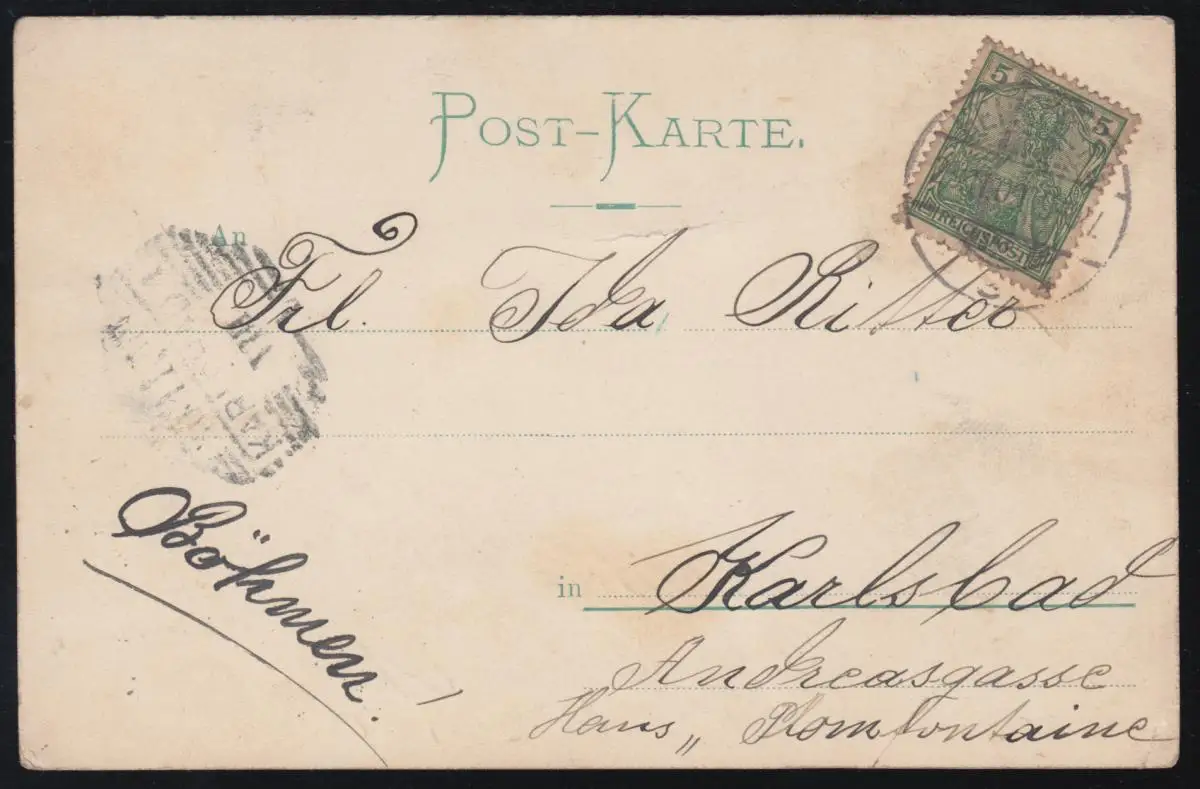 POST-KARTE.
5 5
REICHSPOST
An
Frl. Ida Ritter
Böhmen!
in Karlsbad
Andreasgasse
Haus „
KAR